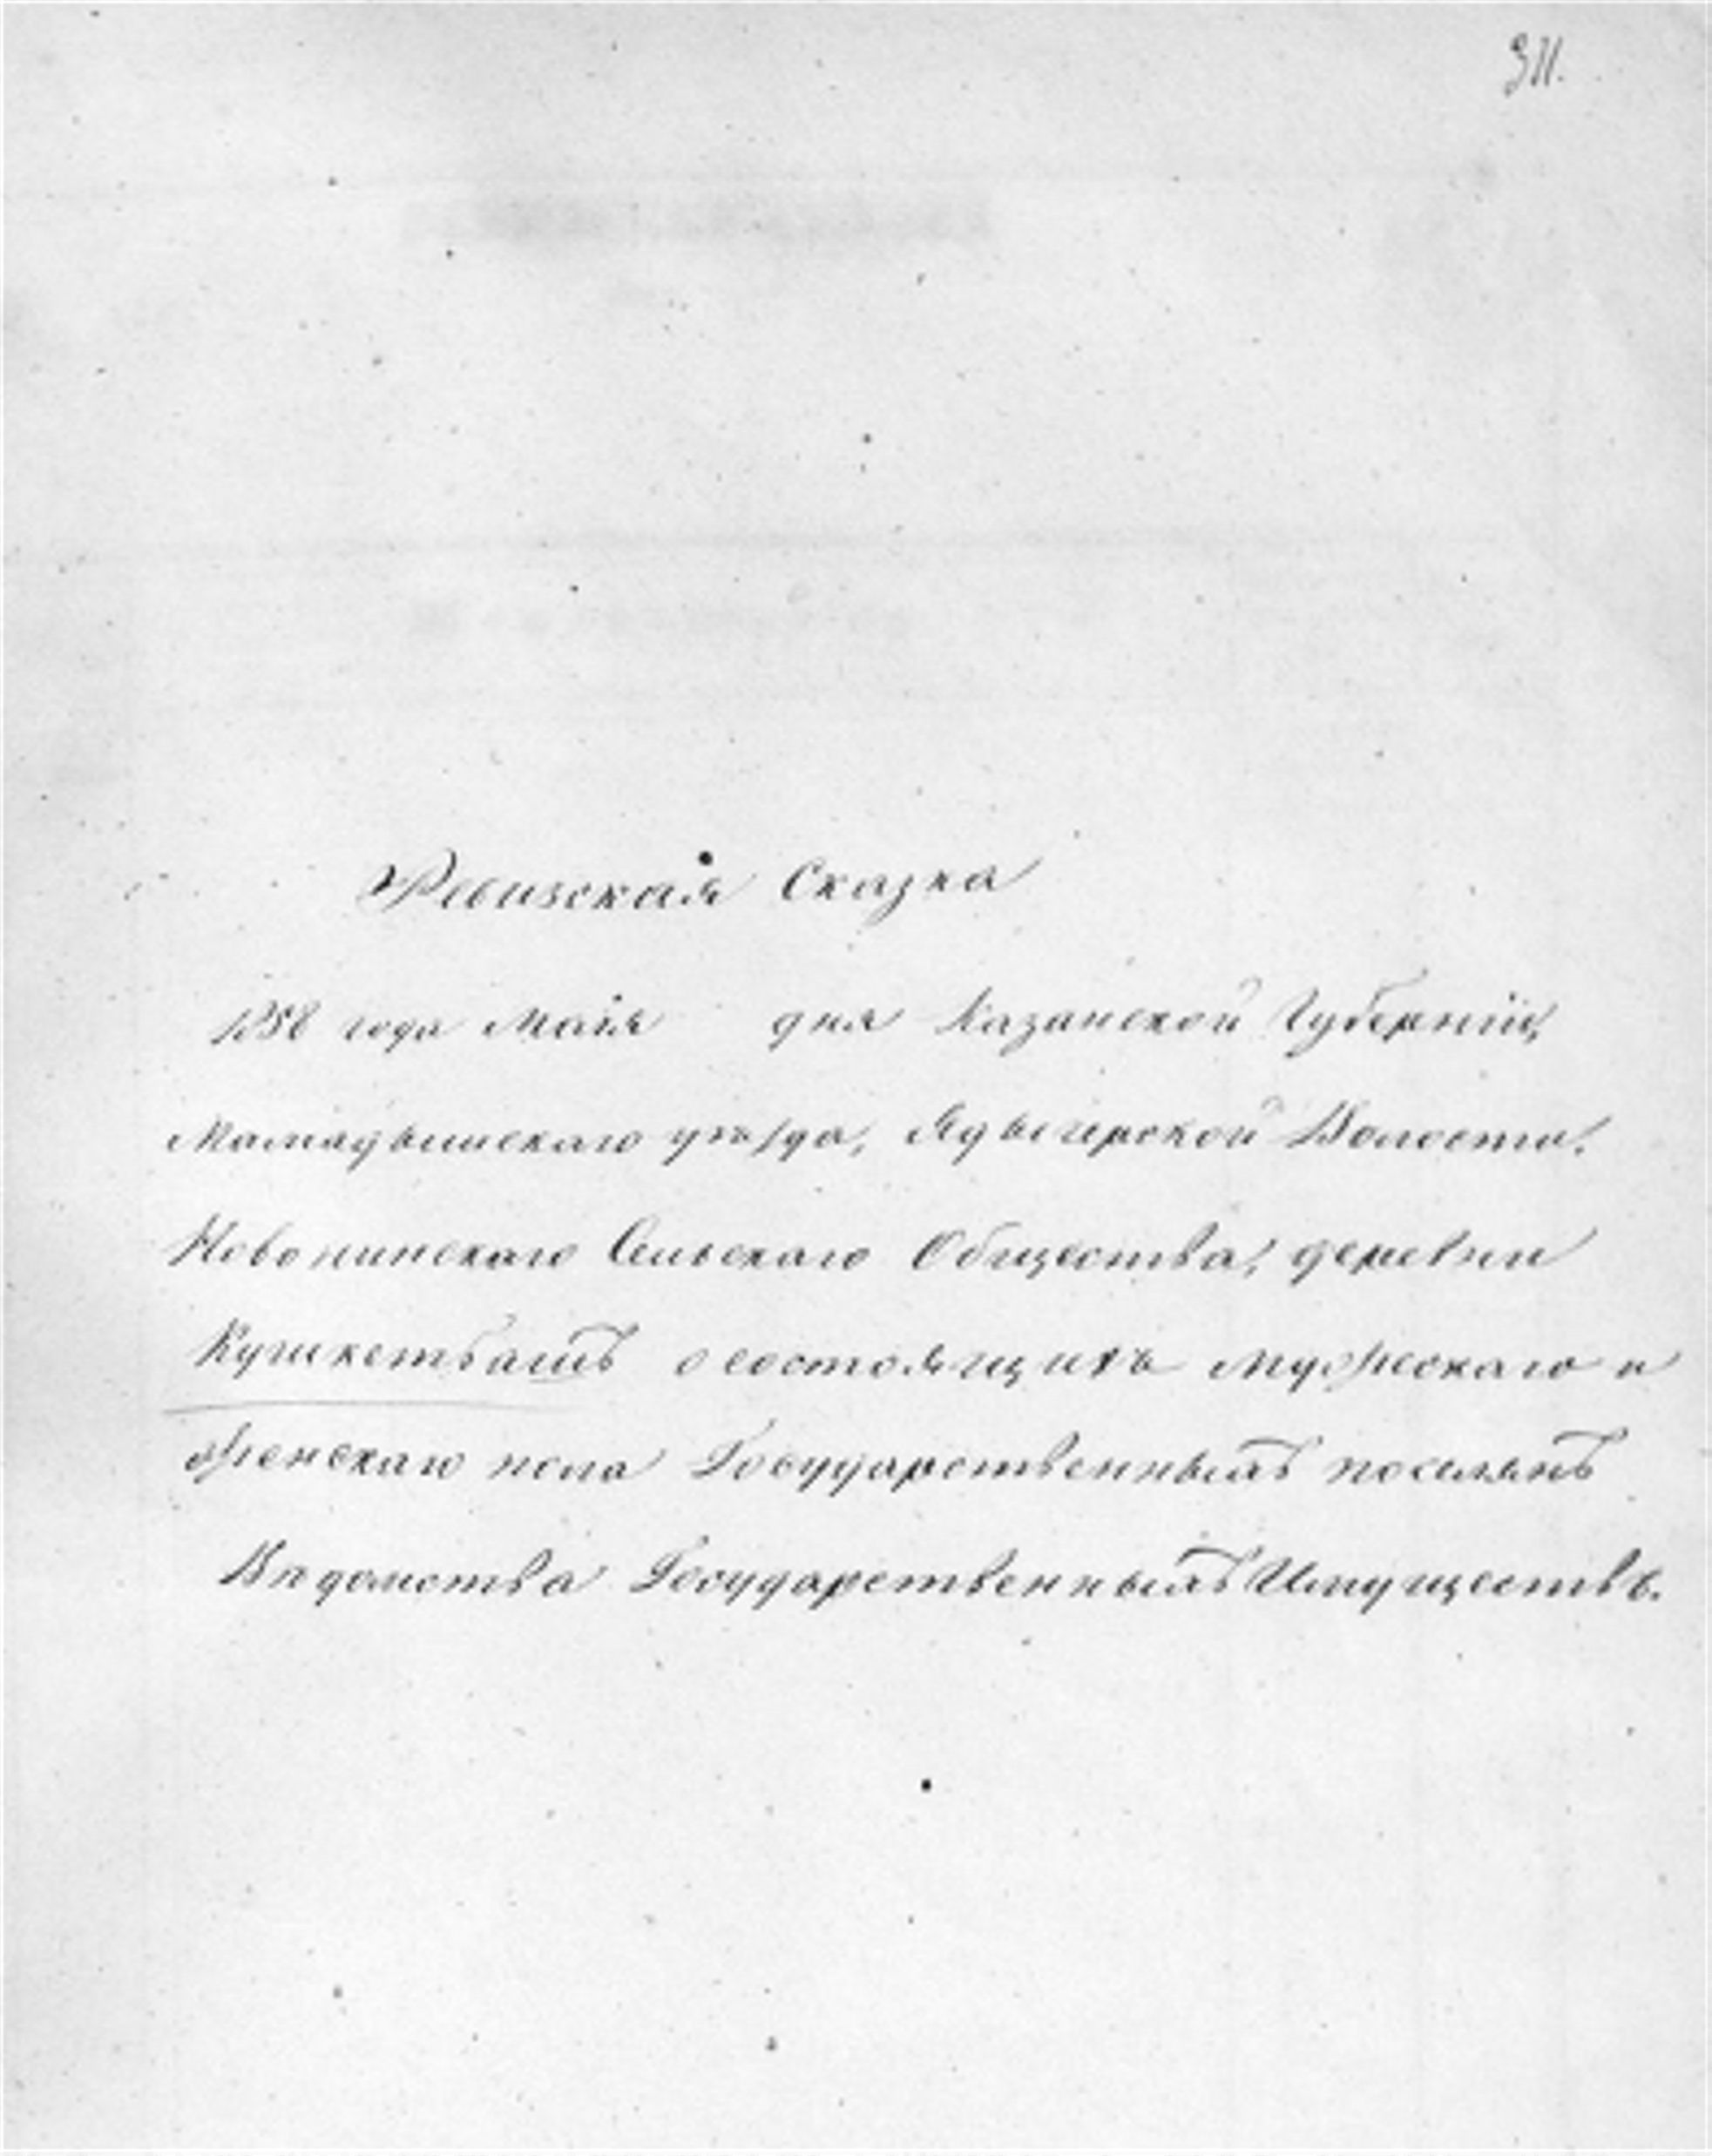 311.
Ревизская Сказка
1858 года Маія дня Казанской Губерніи,
Мамадышскаго уѣзда, Ядыгерской Волости,
Сельскаго Общества, деревни
Кушкетбашъ о состоящихъ мужескаго и
женскаго пола Государственныхъ поселянъ
Вѣдомства Государственныхъ Имуществъ.